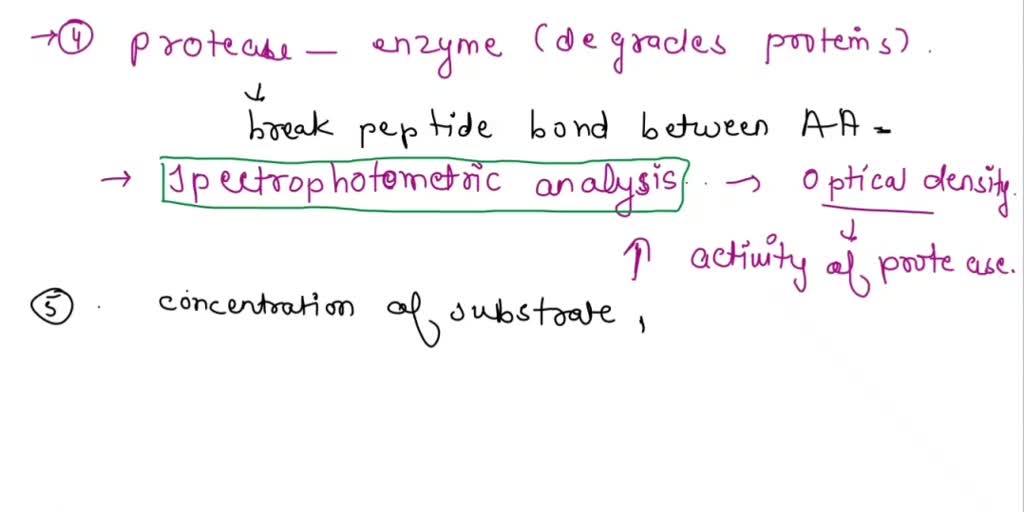 → ④ protease — enzyme (degrades proteins).
↓
break peptide bond between AA -
→ Spectrophotometric analysis. . → Optical density.
↓
↑ activity of protease.
⑤ . concentration of substrate,